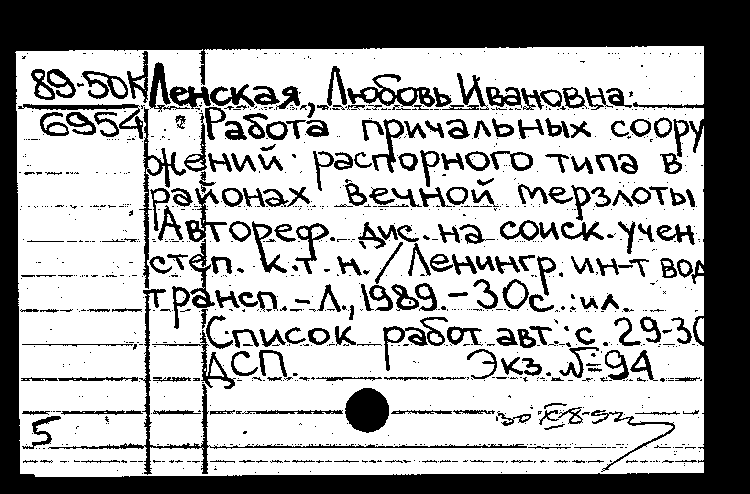 89-50К Ленская, Любовь Ивановна.
6954 Работа причальных соору
жений распорного типа в
районах вечной мерзлоты
Автореф. дис. на соиск. учен
степ. к.т.н. / Ленингр. ин-т вод
трансп. – Л., 1989. – 30с.: ил.
Список работ авт.: с. 29-30
ДСП. Экз. №94
5